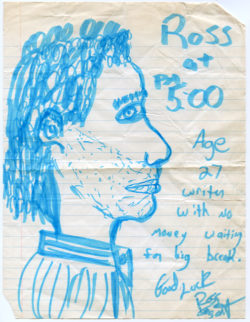 Ross
at
PM
5:00
Age
27
writer
with no
money waiting
for big break.
Good Luck